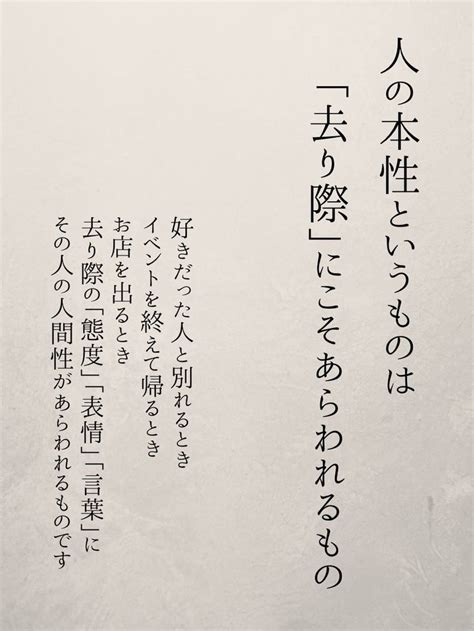 人の本性というものは
「去り際」にこそあらわれるもの
好きだった人と別れるとき
イベントを終えて帰るとき
お店を出るとき
去り際の「態度」「表情」「言葉」に
その人の人間性があらわれるものです